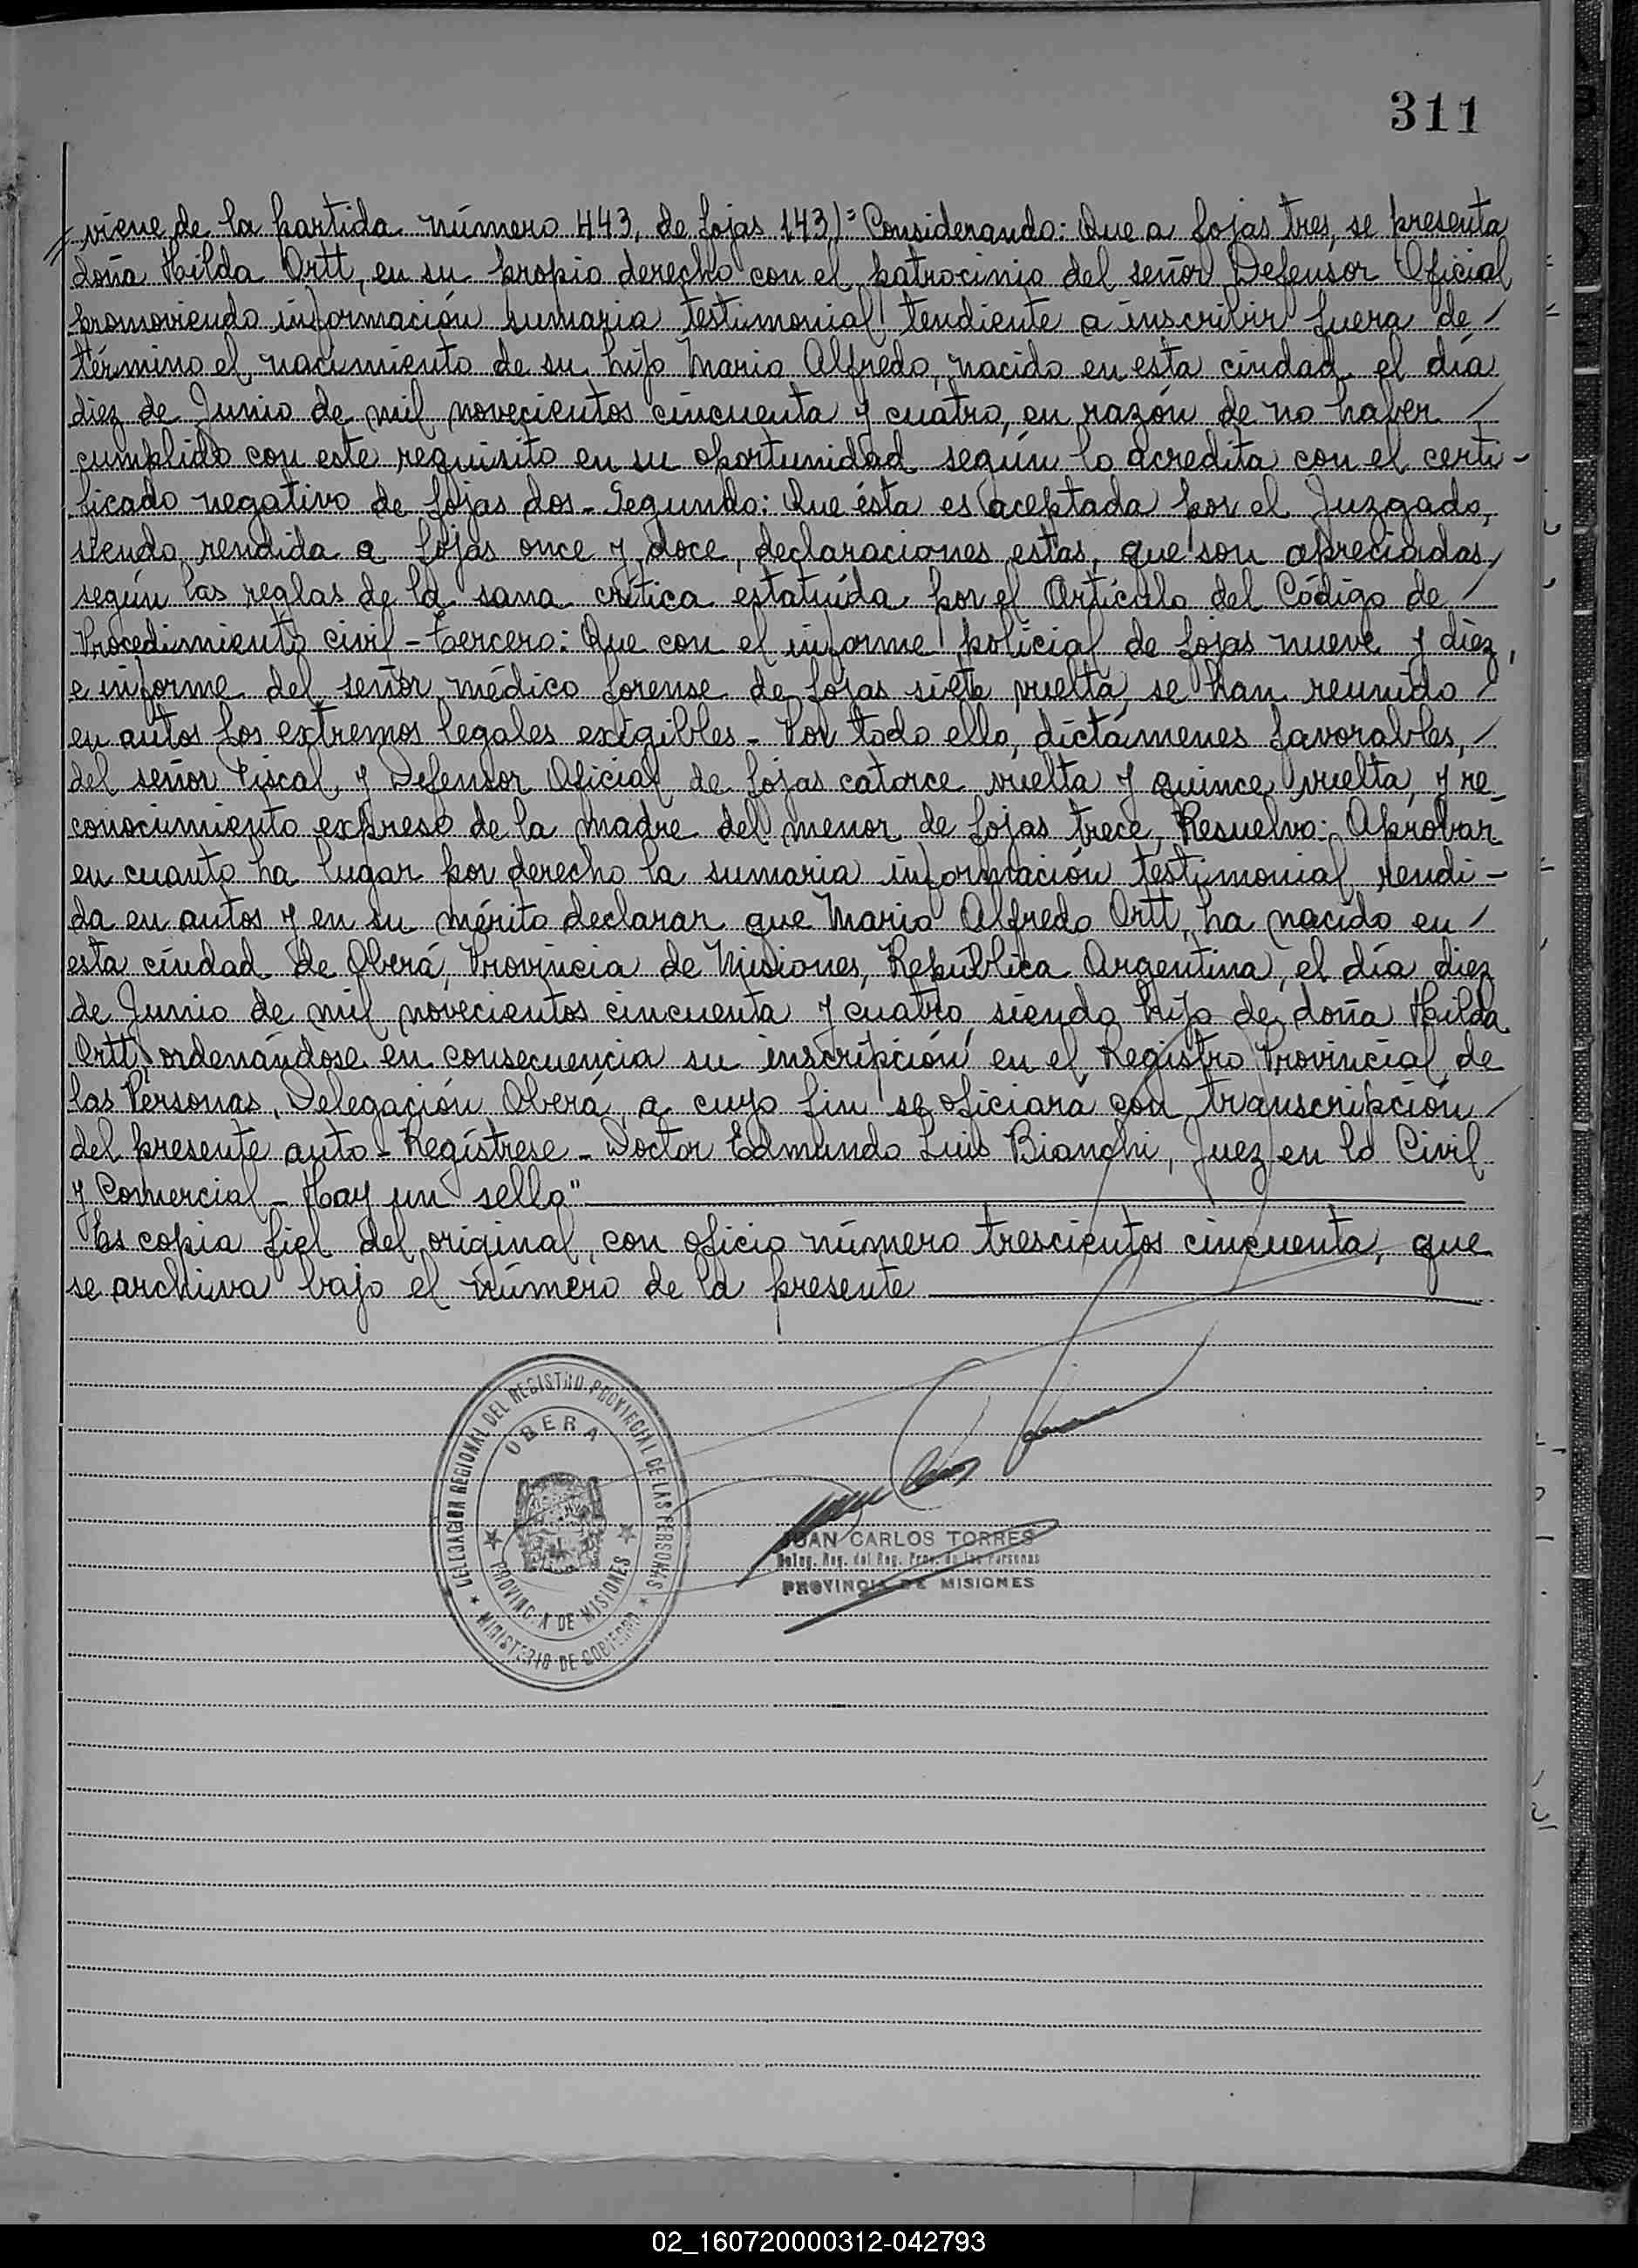 311
viene de la partida número 443, de fojas 143)= Considerando: Que a fojas tres, se presenta
doña Hilda Ortt, en su propio derecho con el patrocinio del señor Defensor Oficial
promoviendo información sumaria testimonial tendiente a inscribir fuera de /
término el nacimiento de su hijo Mario Alfredo, nacido en esta ciudad el día
diez de Junio de mil novecientos cincuenta y cuatro, en razón de no haber /
cumplido con este requisito en su oportunidad según lo acredita con el certi-
ficado negativo de fojas dos - Segundo: Que ésta es aceptada por el Juzgado,
siendo rendida a fojas once y doce, declaraciones estas, que son apreciadas /
según las reglas de la sana crítica estatuída por el Artículo del Código de /
Procedimiento civil - Tercero: Que con el informe policial de fojas nueve y diez,
e informe del señor médico forense de fojas siete vuelta, se han reunido /
en autos los extremos legales exigibles - Por todo ello, dictámenes favorables, /
del señor Fiscal y Defensor Oficial de fojas catorce vuelta y quince vuelta, y re-
conocimiento expreso de la madre del menor de fojas trece, Resuelvo: Aprobar
en cuanto ha lugar por derecho la sumaria información testimonial rendi-
da en autos y en su mérito declarar que Mario Alfredo Ortt, ha nacido en /
esta ciudad de Oberá, Provincia de Misiones, República Argentina, el día diez
de Junio de mil novecientos cincuenta y cuatro siendo hijo de doña Hilda
Ortt, ordenándose en consecuencia su inscripción en el Registro Provincial de
las Personas, Delegación Oberá, a cuyo fin se oficiará con transcripción /
del presente auto - Regístrese - Doctor Edmundo Luis Bianchi, Juez en lo Civil
y Comercial - Hay un sello"
Es copia fiel del original, con oficio número trescientos cincuenta, que
se archiva bajo el número de la presente
DELEGACION REGIONAL DEL REGISTRO PROVINCIAL DE LAS PERSONAS
OBERA
PROVINCIA DE MISIONES
MINISTERIO DE GOBIERNO
JUAN CARLOS TORRES
Deleg. Reg. del Reg. Prov. de las Personas
PROVINCIA DE MISIONES
02_160720000312-042793